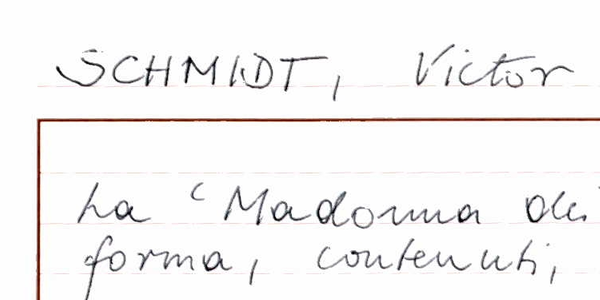 SCHMIDT, Victor
La "Madonna dei
forma, contenuti,